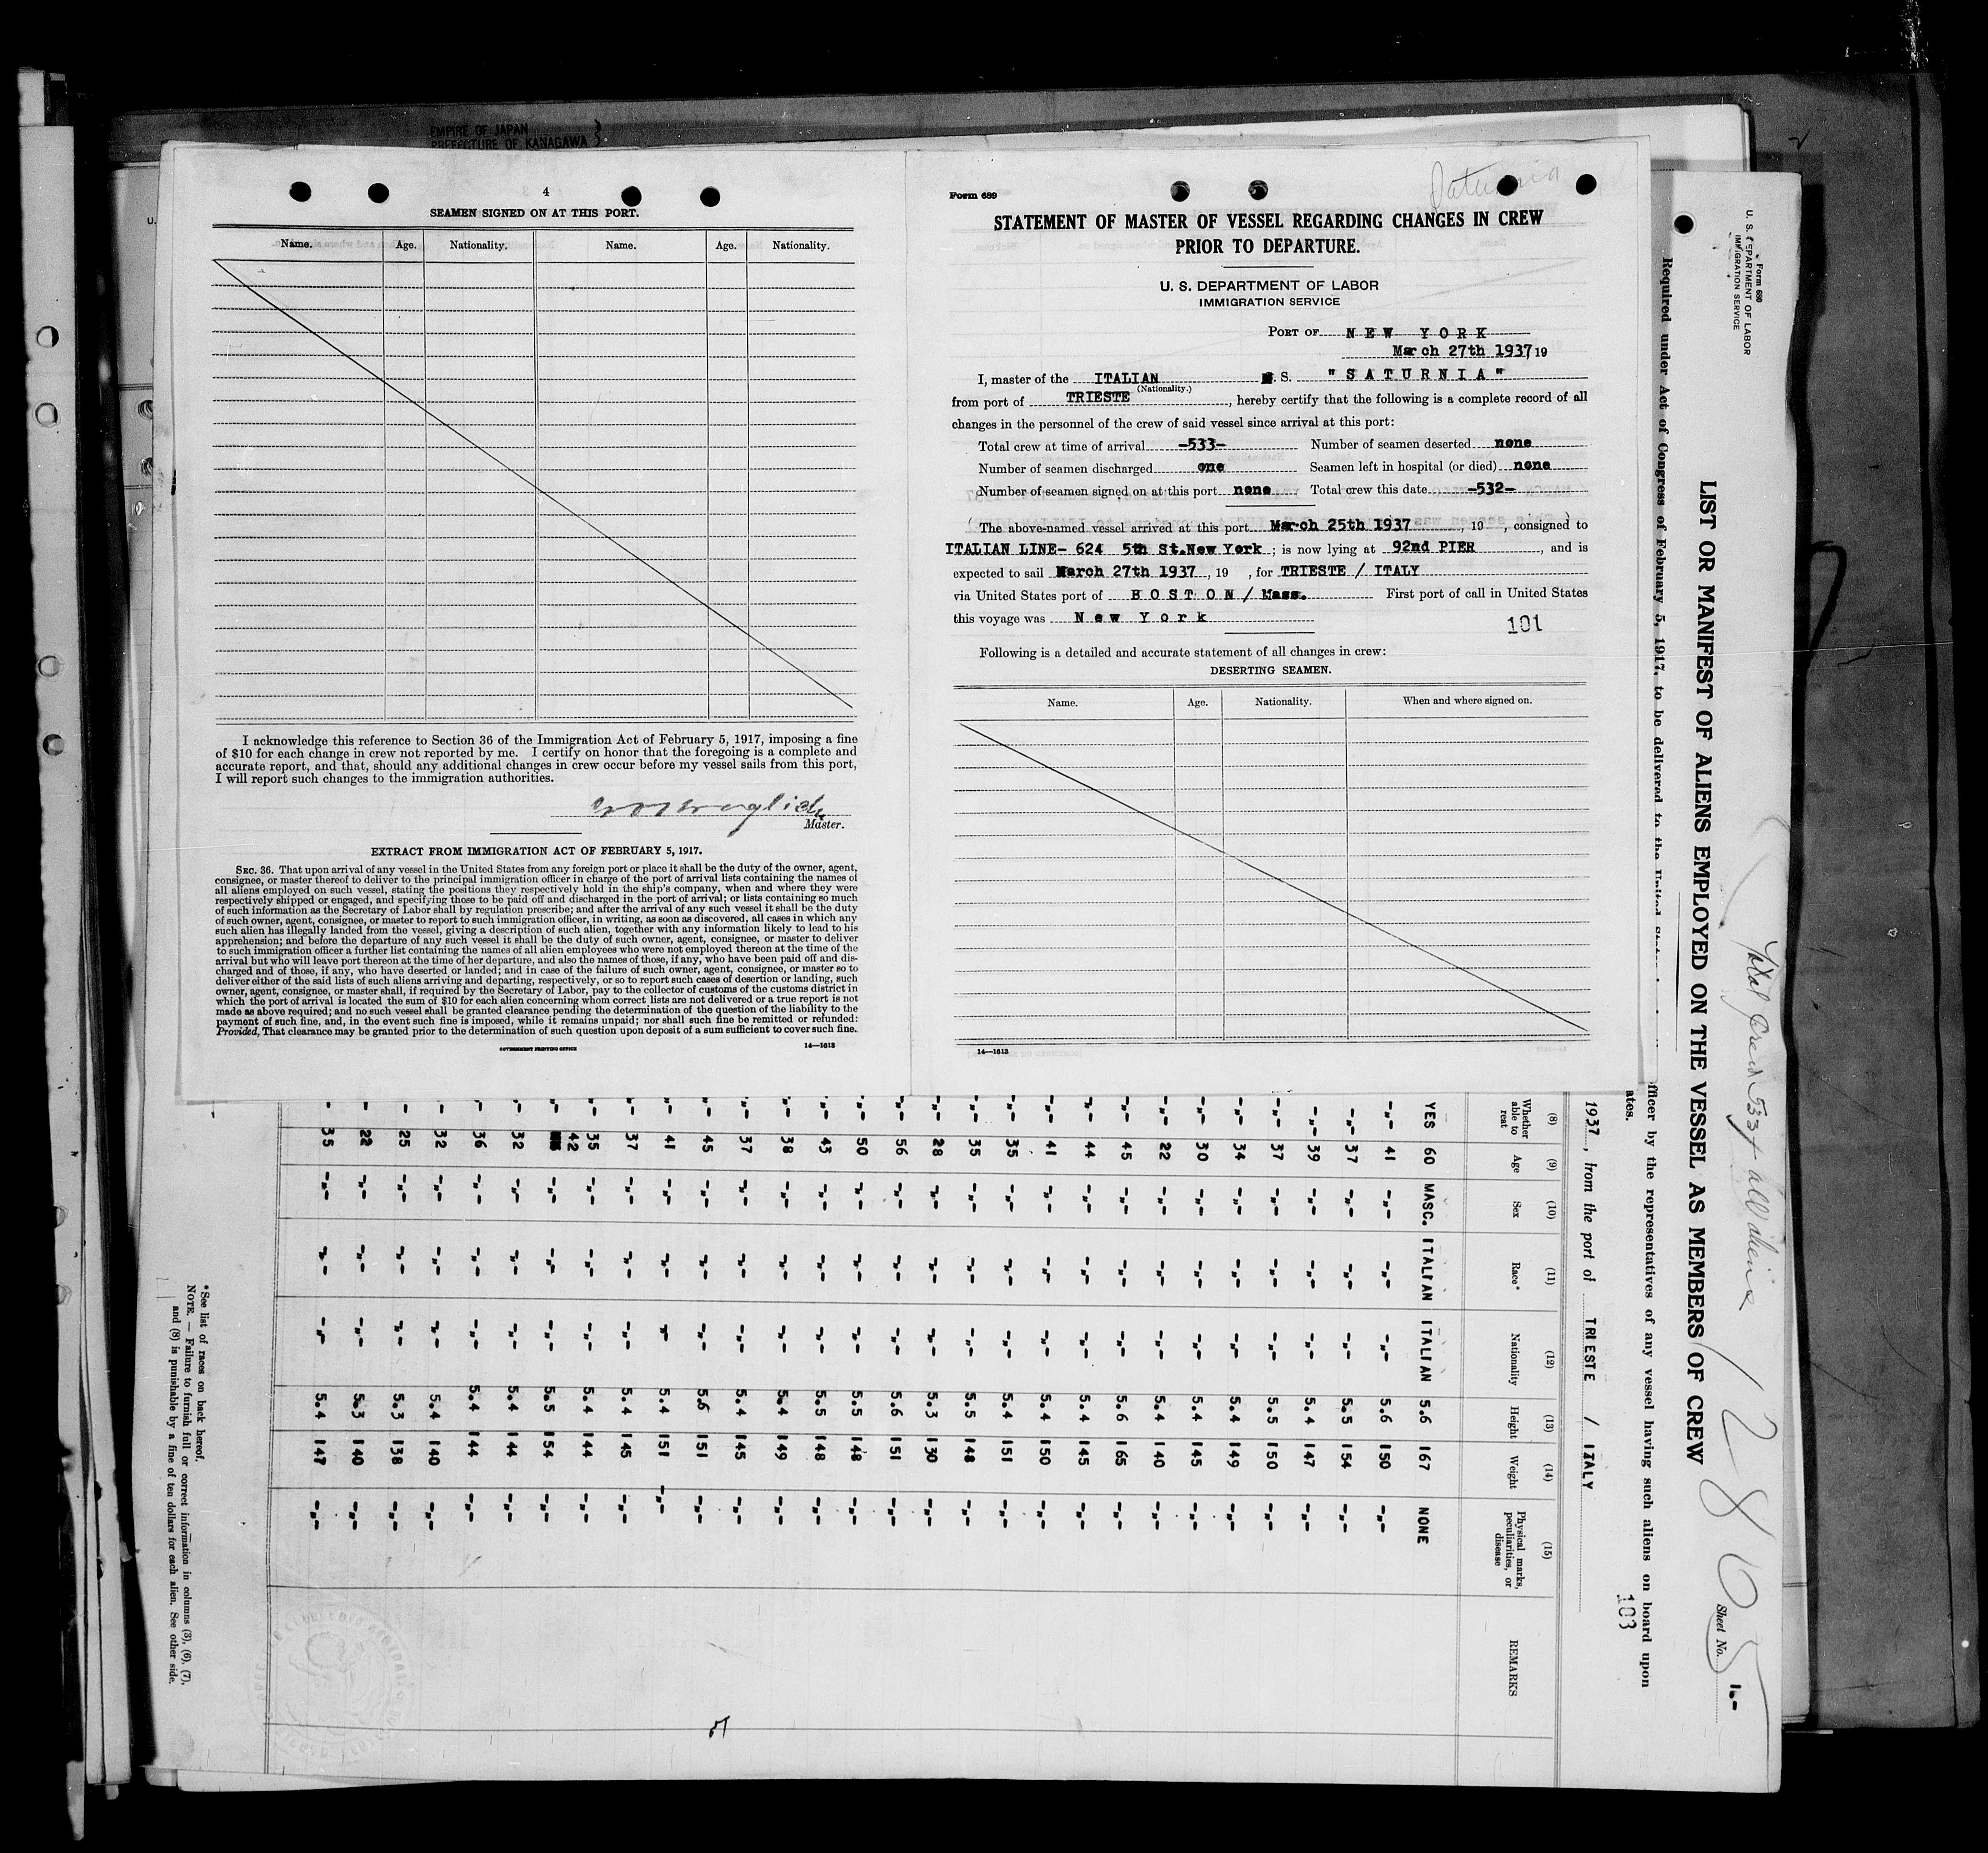 EMPIRE OF JAPAN
PREFECTURE OF KANAGAWA
4
SEAMEN SIGNED ON AT THIS PORT.
Name. Age. Nationality. Name. Age. Nationality.
I acknowledge this reference to Section 36 of the Immigration Act of February 5, 1917, imposing a fine
of $10 for each change in crew not reported by me. I certify on honor that the foregoing is a complete and
accurate report, and that, should any additional changes in crew occur before my vessel sails from this port,
I will report such changes to the immigration authorities.
Master.
EXTRACT FROM IMMIGRATION ACT OF FEBRUARY 5, 1917.
SEC. 36. That upon arrival of any vessel in the United States from any foreign port or place it shall be the duty of the owner, agent,
consignee, or master thereof to deliver to the principal immigration officer in charge of the port of arrival lists containing the names of
all aliens employed on such vessel, stating the positions they respectively hold in the ship's company, when and where they were
respectively shipped or engaged, and specifying those to be paid off and discharged in the port of arrival; or lists containing so much
of such information as the Secretary of Labor shall by regulation prescribe; and after the arrival of any such vessel it shall be the duty
of such owner, agent, consignee, or master to report to such immigration officer, in writing, as soon as discovered, all cases in which any
such alien has illegally landed from the vessel, giving a description of such alien, together with any information likely to lead to his
apprehension; and before the departure of any such vessel it shall be the duty of such owner, agent, consignee, or master to deliver
to such immigration officer a further list containing the names of all alien employees who were not employed thereon at the time of the
arrival but who will leave port thereon at the time of her departure, and also the names of those, if any, who have been paid off and dis-
charged and of those, if any, who have deserted or landed; and in case of the failure of such owner, agent, consignee, or master so to
deliver either of the said lists of such aliens arriving and departing, respectively, or so to report such cases of desertion or landing, such
owner, agent, consignee, or master shall, if required by the Secretary of Labor, pay to the collector of customs of the customs district in
which the port of arrival is located the sum of $10 for each alien concerning whom correct lists are not delivered or a true report is not
made as above required; and no such vessel shall be granted clearance pending the determination of the question of the liability to the
payment of such fine, and, in the event such fine is imposed, while it remains unpaid; nor shall such fine be remitted or refunded:
Provided, That clearance may be granted prior to the determination of such question upon deposit of a sum sufficient to cover such fine.
GOVERNMENT PRINTING OFFICE 14—1613
Form 689
Saturnia
STATEMENT OF MASTER OF VESSEL REGARDING CHANGES IN CREW
PRIOR TO DEPARTURE.
U. S. DEPARTMENT OF LABOR
IMMIGRATION SERVICE
PORT OF NEW YORK
March 27th 1937, 19
I, master of the ITALIAN S. "SATURNIA"
(Nationality.)
from port of TRIESTE, hereby certify that the following is a complete record of all
changes in the personnel of the crew of said vessel since arrival at this port:
Total crew at time of arrival -533- Number of seamen deserted none
Number of seamen discharged one Seamen left in hospital (or died) none
Number of seamen signed on at this port none Total crew this date -532-
The above-named vessel arrived at this port March 25th 1937, 19 , consigned to
ITALIAN LINE- 624 5th St.New York ; is now lying at 92nd PIER , and is
expected to sail March 27th 1937, 19 , for TRIESTE / ITALY
via United States port of BOSTON / Mass. First port of call in United States
this voyage was New York
101
Following is a detailed and accurate statement of all changes in crew:
DESERTING SEAMEN.
Name. Age. Nationality. When and where signed on.
14—1613
Form 680
U. S. DEPARTMENT OF LABOR
IMMIGRATION SERVICE
Total Crew 533 + all aliens
12805
Sheet No. 1.-
LIST OR MANIFEST OF ALIENS EMPLOYED ON THE VESSEL AS MEMBERS OF CREW
Required under Act of Congress of February 5, 1917, to be delivered to the United
officer by the representatives of any vessel having such aliens on board upon
ates.
103
1937 , from the port of TRIESTE / ITALY
(8) (9) (10) (11) (12) (13) (14) (15)
Whether able to reat Age Sex Race* Nationality Height Weight Physical marks, peculiarities, or disease REMARKS
YES 60 MASC. ITALIAN ITALIAN 5.6 167 NONE
-"- 41 -"- -"- -"- 5.6 150 -"-
-"- 37 -"- -"- -"- 5.5 154 -"-
-"- 39 -"- -"- -"- 5.4 147 -"-
-"- 37 -"- -"- -"- 5.5 150 -"-
-"- 34 -"- -"- -"- 5.4 149 -"-
-"- 30 -"- -"- -"- 5.4 145 -"-
-"- 22 -"- -"- -"- 5.4 140 -"-
-"- 45 -"- -"- -"- 5.6 165 -"-
-"- 44 -"- -"- -"- 5.4 145 -"-
-"- 41 -"- -"- -"- 5.4 150 -"-
-"- 35 -"- -"- -"- 5.4 151 -"-
-"- 35 -"- -"- -"- 5.5 148 -"-
-"- 28 -"- -"- -"- 5.3 130 -"-
-"- 56 -"- -"- -"- 5.6 151 -"-
-"- 50 -"- -"- -"- 5.5 148 -"-
-"- 43 -"- -"- -"- 5.5 148 -"-
-"- 38 -"- -"- -"- 5.4 149 -"-
-"- 37 -"- -"- -"- 5.4 145 -"-
-"- 45 -"- -"- -"- 5.6 151 -"-
-"- 41 -"- -"- -"- 5.4 151 -"-
-"- 37 -"- -"- -"- 5.4 145 -"-
-"- 35 -"- -"- -"- 5.4 144 -"-
-"- 42 -"- -"- -"- 5.5 154 -"-
-"- 32 -"- -"- -"- 5.4 144 -"-
-"- 36 -"- -"- -"- 5.4 144 -"-
- 32 -"- -"- -"- 5.4 140 -"-
- 25 -"- -"- -"- 5.3 138 -"-
- 22 -"- -"- -"- 5.3 140 -"-
- 35 -"- -"- -"- 5.4 147 -"-
*See list of races on back hereof.
NOTE.—Failure to furnish full or correct information in columns (3), (6), (7),
and (8) is punishable by a fine of ten dollars for each alien. See other side.